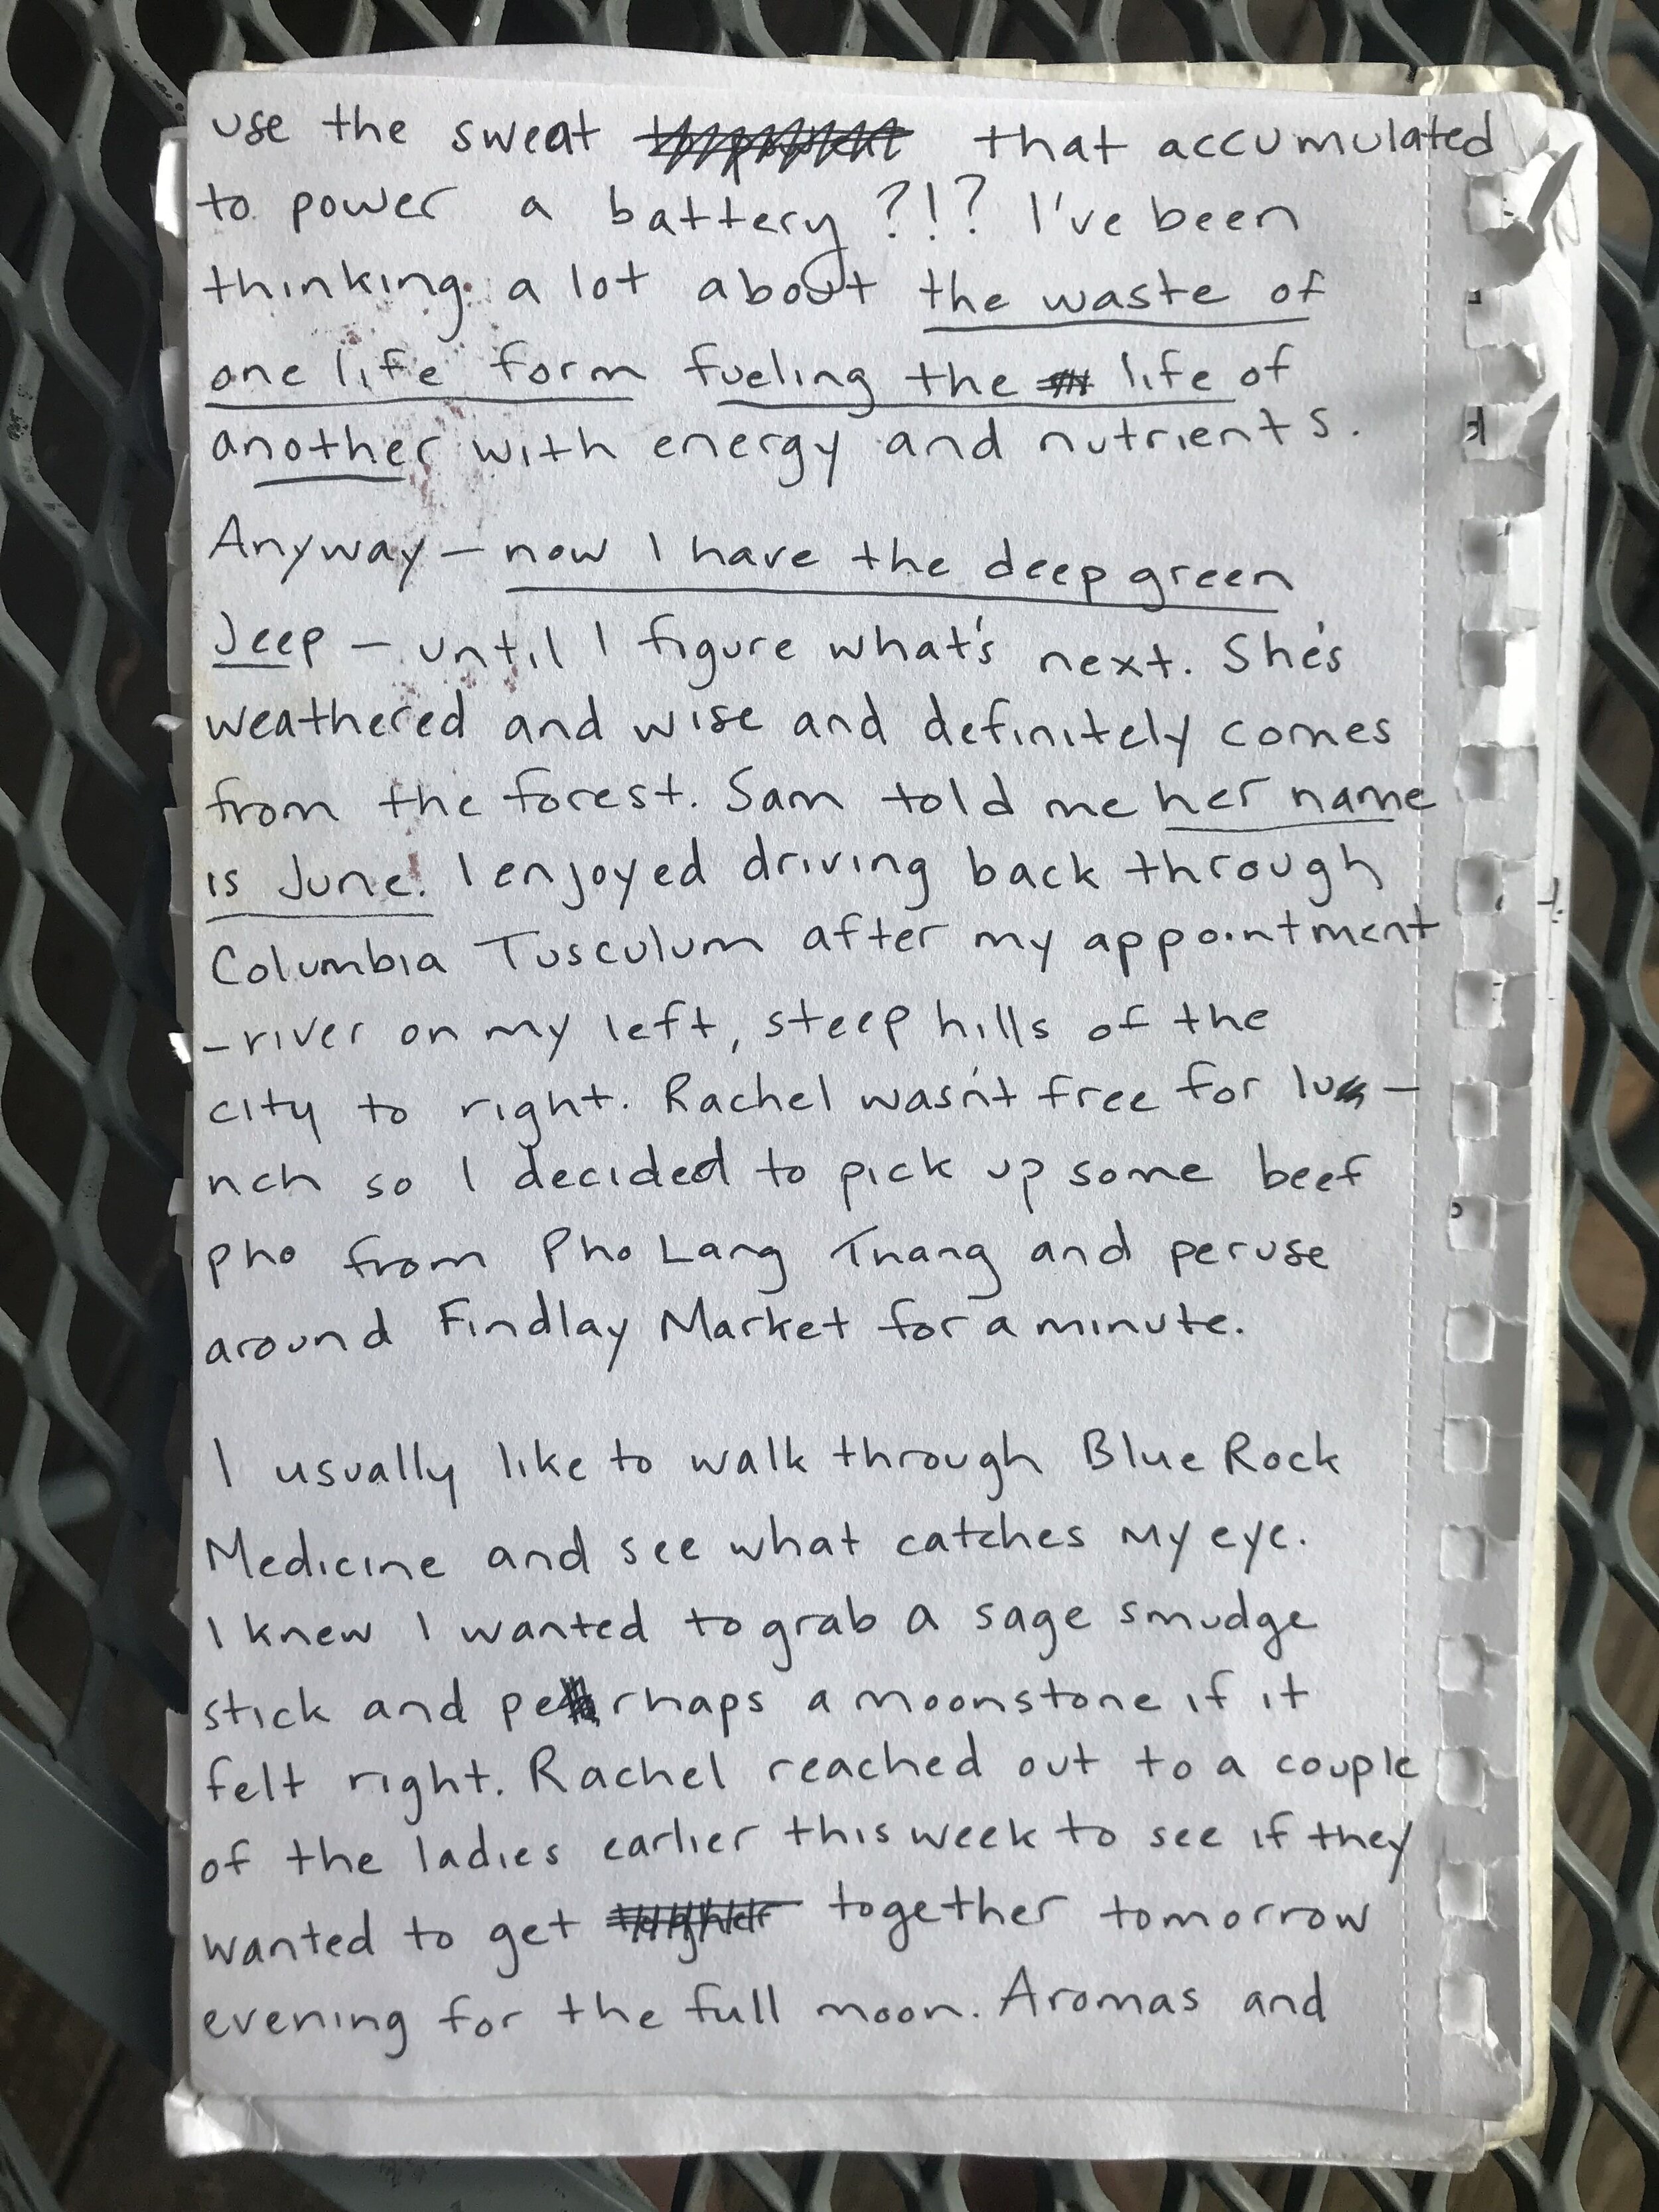 use the sweat that accumulated
to power a battery?!? I've been
thinking a lot about the waste of
one life form fueling the life of
another with energy and nutrients.
Anyway – now I have the deep green
Jeep – until I figure what's next. She's
weathered and wise and definitely comes
from the forest. Sam told me her name
is June! I enjoyed driving back through
Columbia Tusculum after my appointment
– river on my left, steep hills of the
city to right. Rachel wasn't free for lu–
nch so I decided to pick up some beef
pho from Pho Lang Thang and peruse
around Findlay Market for a minute.
I usually like to walk through Blue Rock
Medicine and see what catches my eye.
I knew I wanted to grab a sage smudge
stick and perhaps a moonstone if it
felt right. Rachel reached out to a couple
of the ladies earlier this week to see if they
wanted to get together tomorrow
evening for the full moon. Aromas and